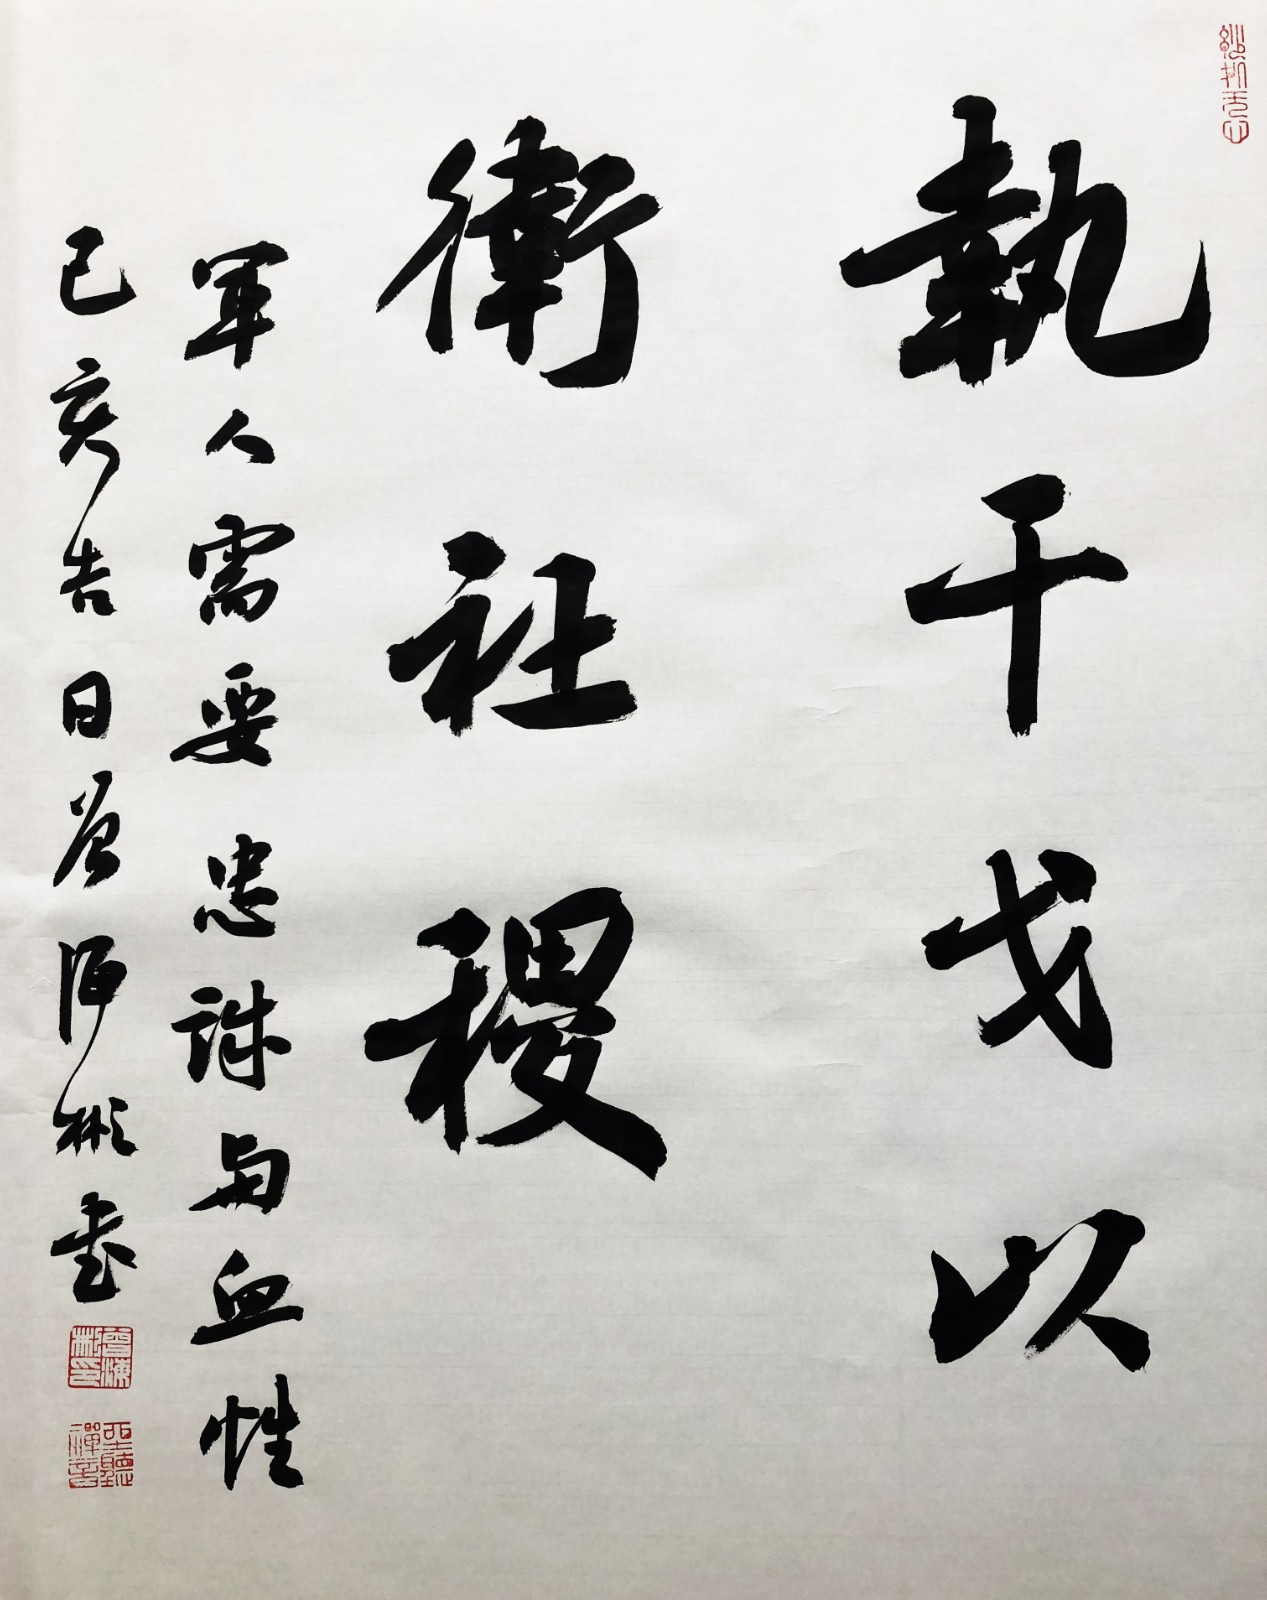 執干戈以
衛社稷
軍人需要忠誠与血性
己亥吉日曾彬書